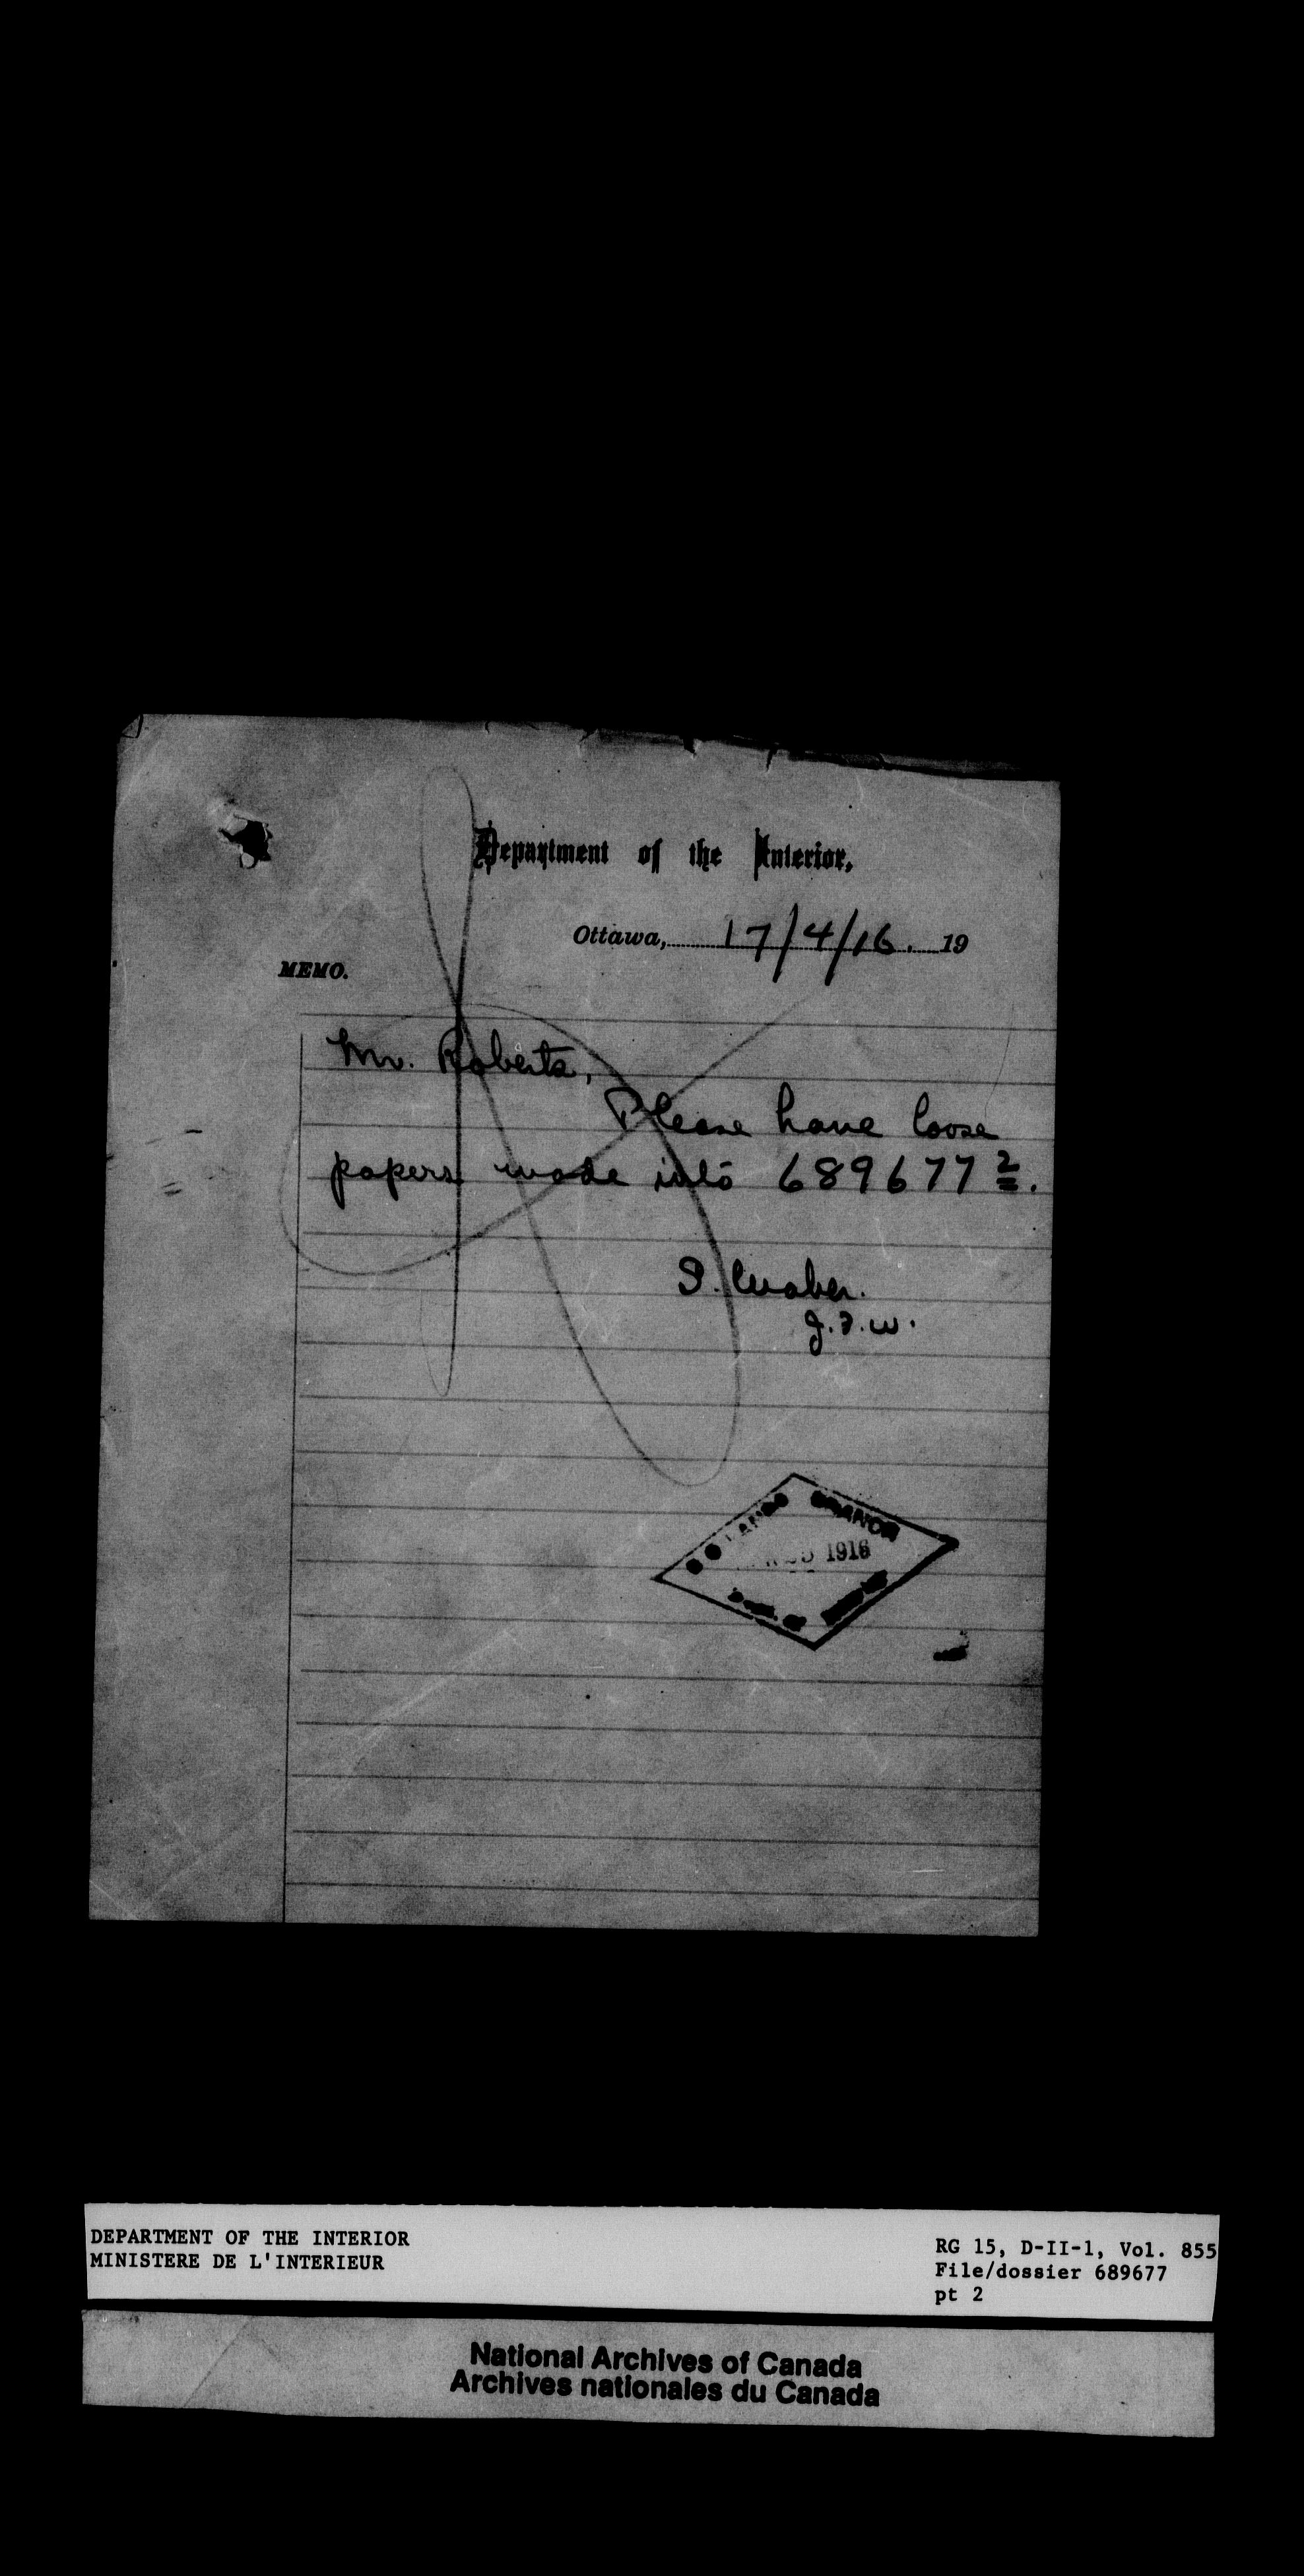 Department of the Interior,
Ottawa, 17/4/16. 19
MEMO.
Mr. Roberts,
Please have loose
papers made into 689677 2.
J.F.W.
LANDS BRANCH
1916
OF
DEPARTMENT OF THE INTERIOR
MINISTERE DE L'INTERIEUR
RG 15, D-II-1, Vol. 855
File/dossier 689677
pt 2
National Archives of Canada
Archives nationales du Canada